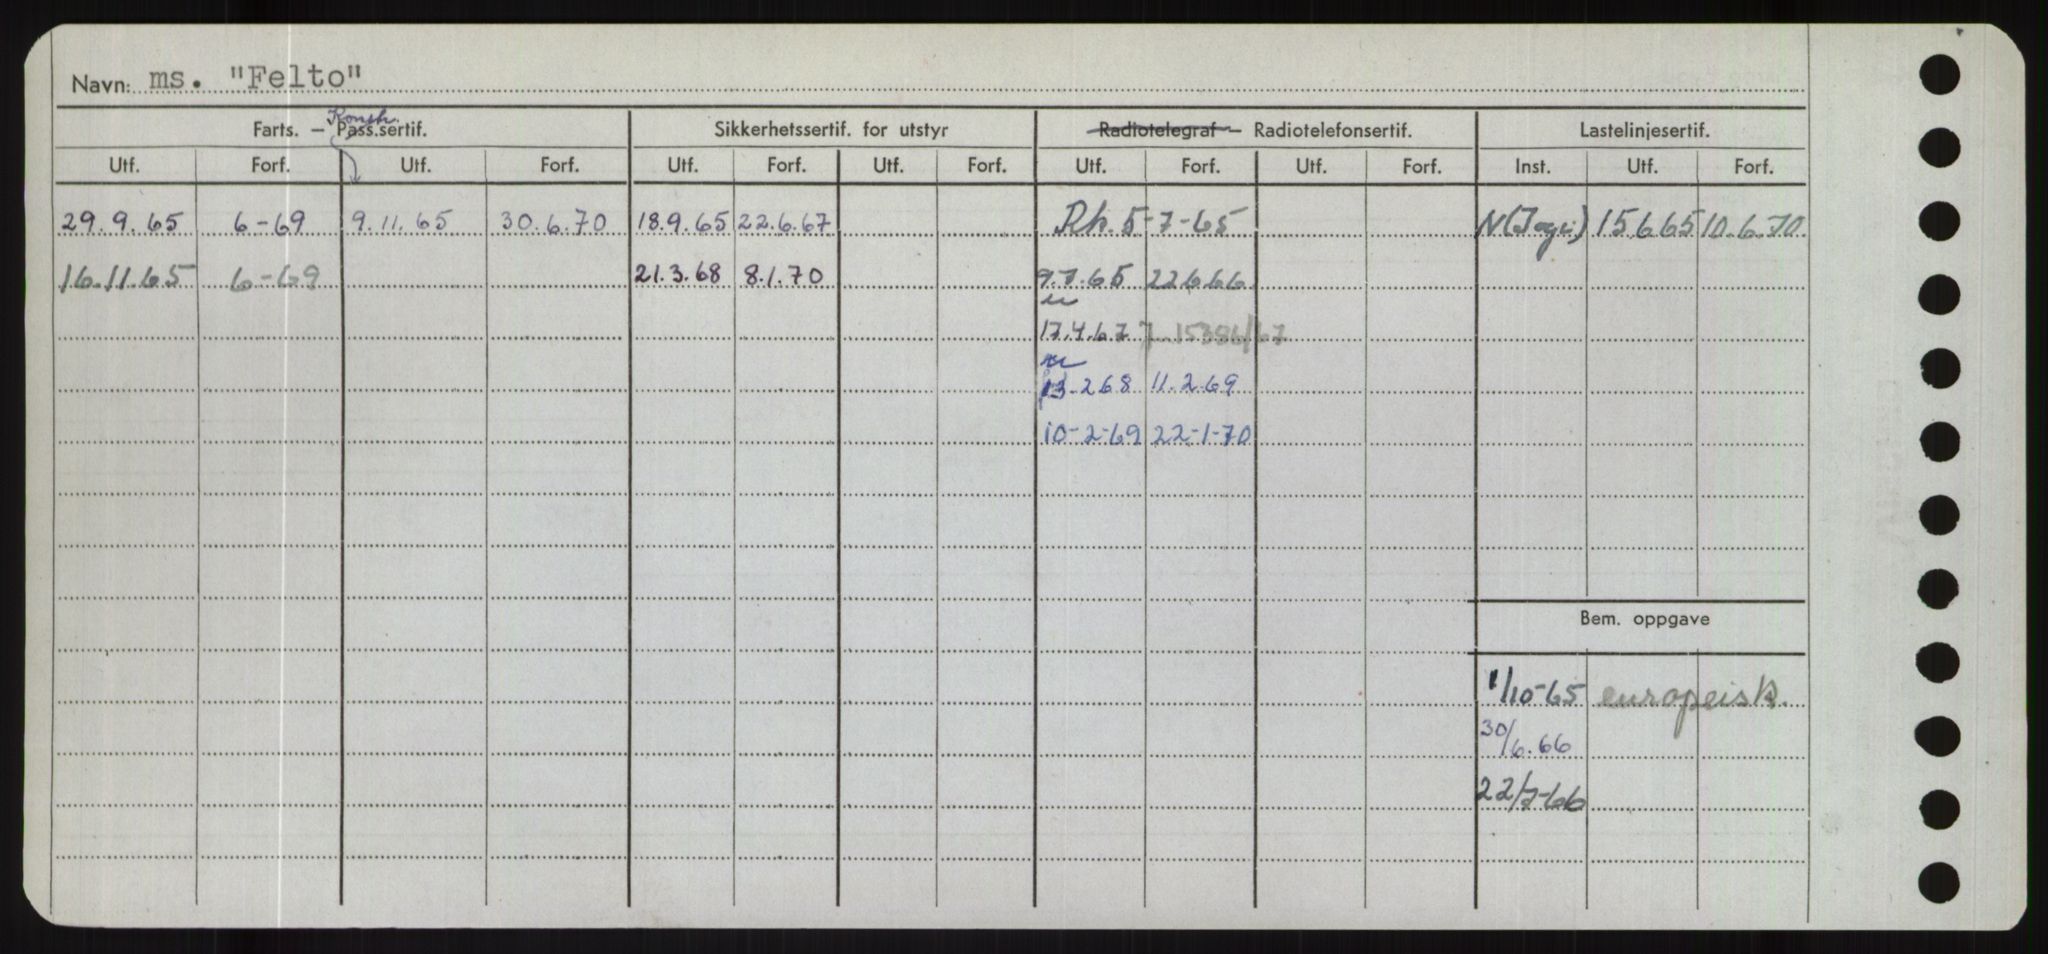 Navn: ms. "Felto"
Konstr.
Farts. – Pass.sertif. Sikkerhetssertif. for utstyr Radiotelegraf – Radiotelefonsertif. Lastelinjesertif.
Utf. Forf. Utf. Forf. Utf. Forf. Utf. Forf. Utf. Forf. Utf. Forf. Inst. Utf. Forf.
29.9.65 6-69 9.11.65 30.6.70 18.9.65 22.6.67 Rh. 5-7-65 15.6.65 10.6.70
16.11.65 6-69 21.3.68 8.1.70 9.7.65 22666
17.4.67 J. 15386/67
13-268 11.2.69
10-2-69 22-1-70
Bem. oppgave
1/10-65 europeisk.
30/6.66
22/7-66